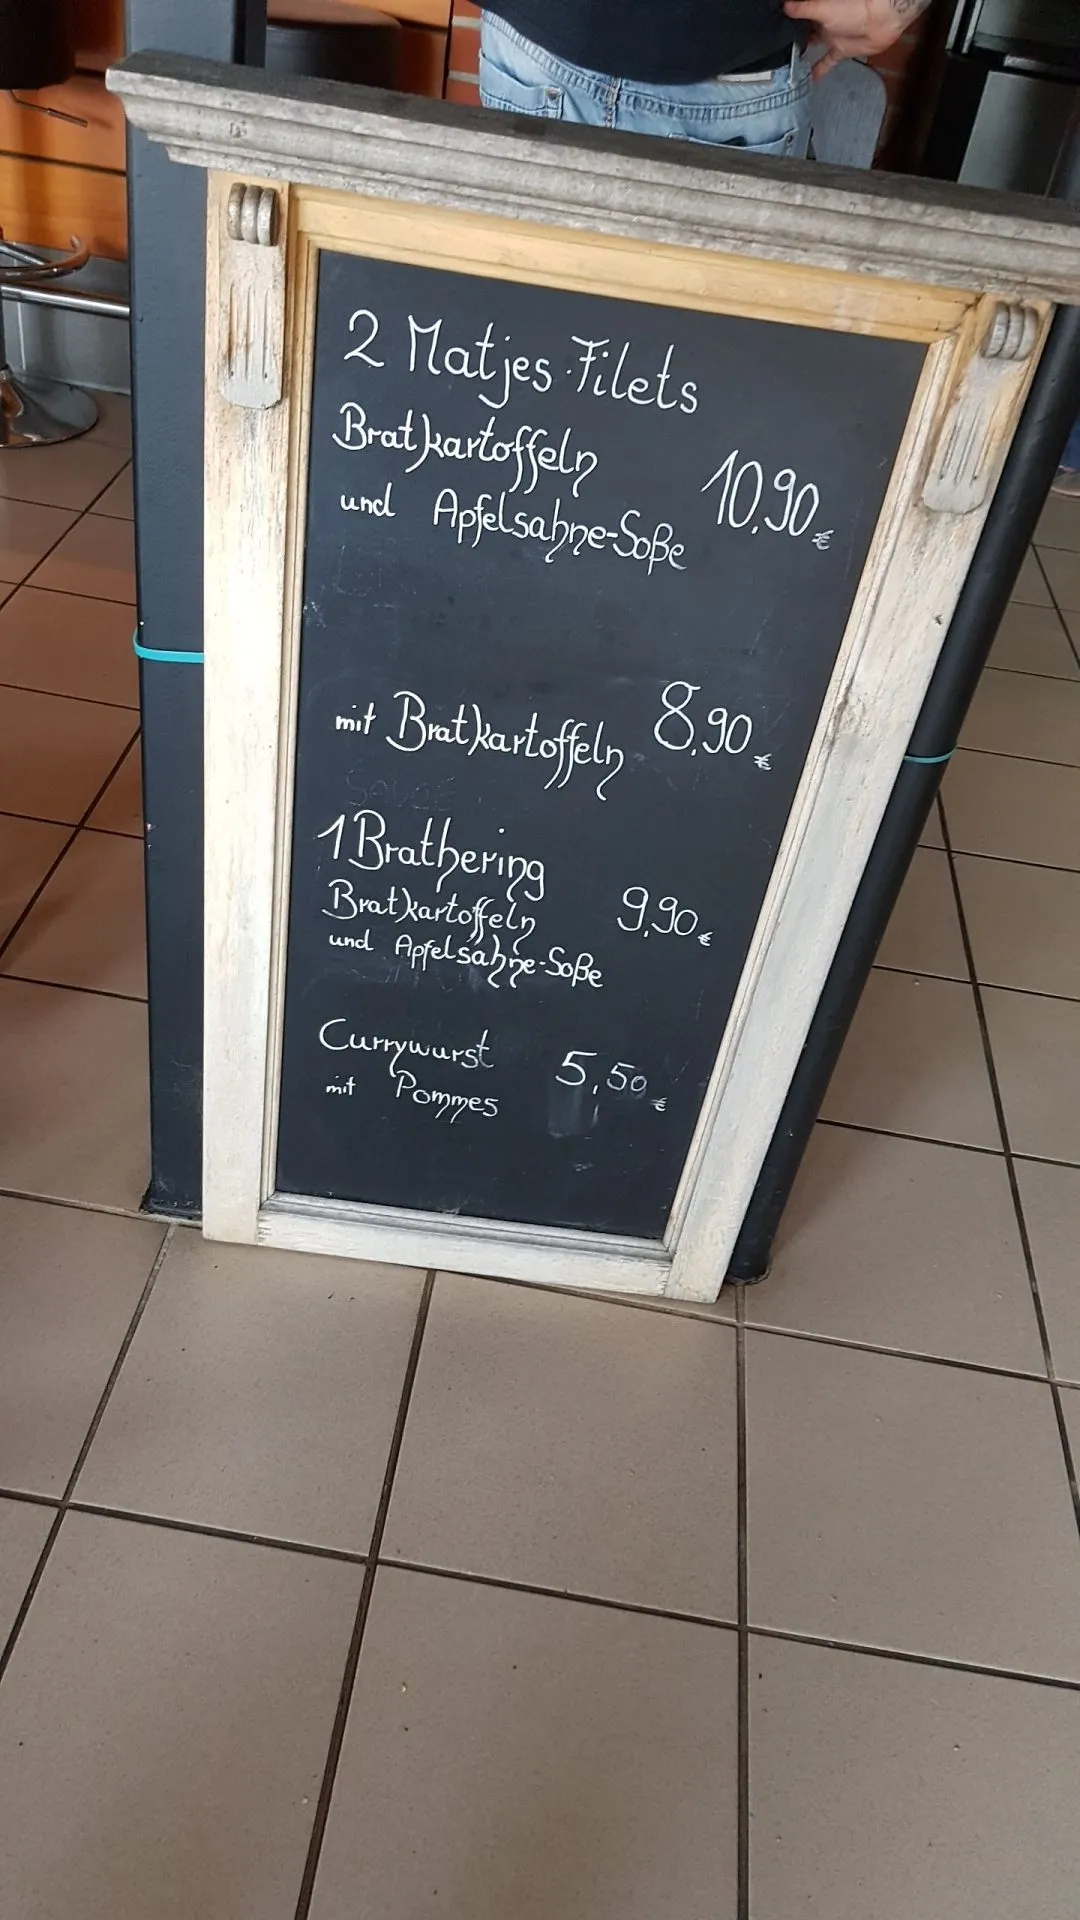 2 Matjes-Filets
Bratkartoffeln 10,90 €
und Apfelsahne-Soße
mit Bratkartoffeln 8,90 €
1 Brathering
Bratkartoffeln 9,90 €
und Apfelsahne-Soße
Currywurst 5,50 €
mit Pommes